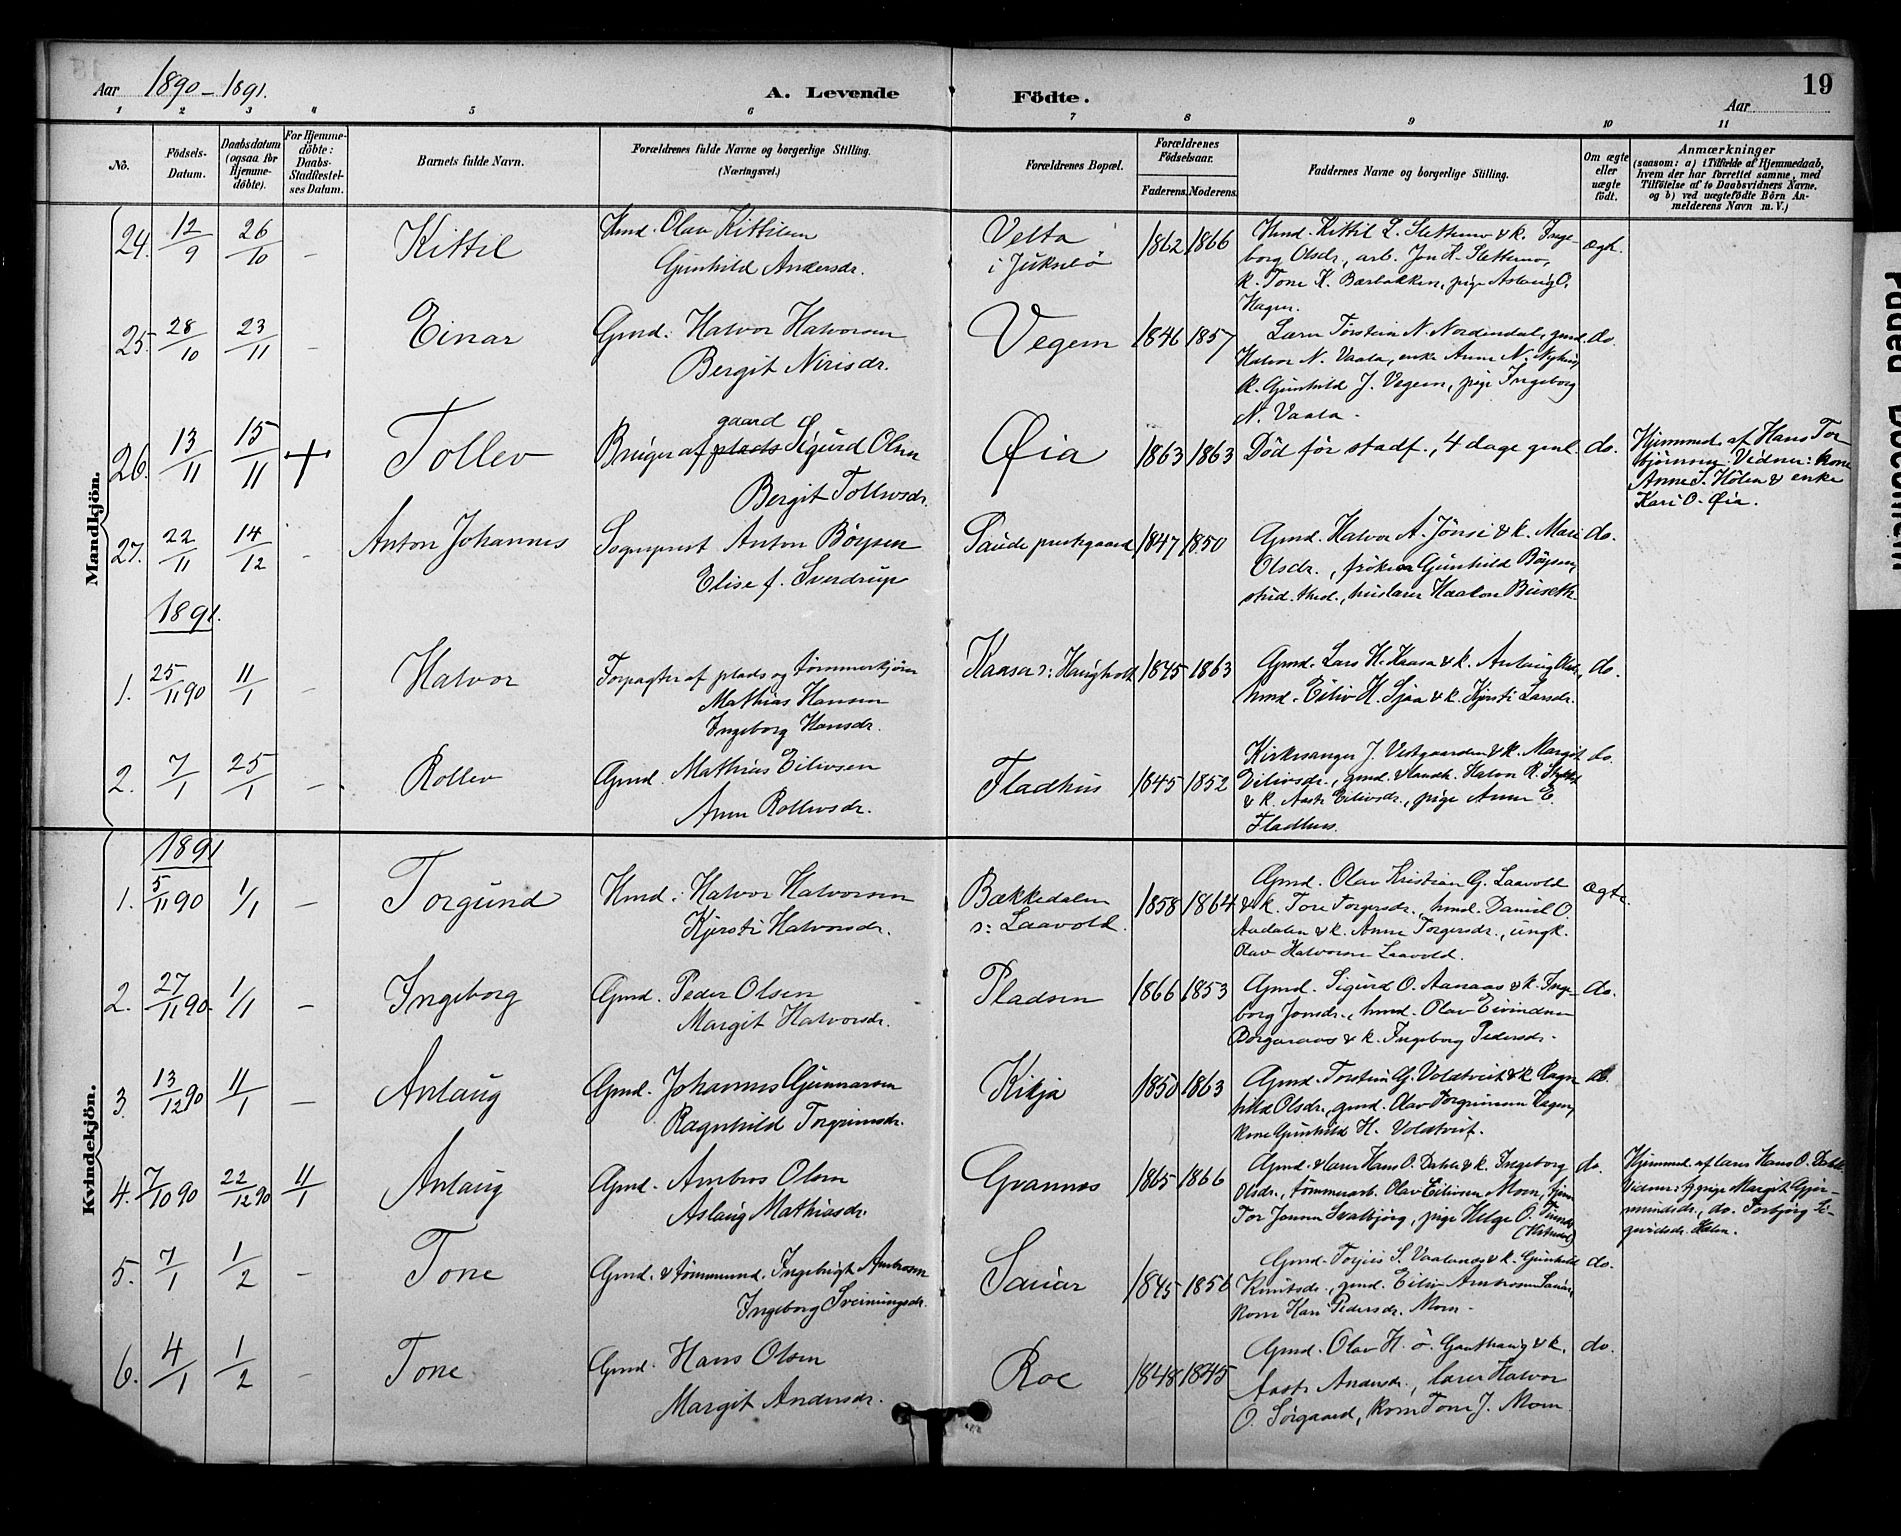 Aar 1890-1891.
A. Levende Födte.
Aar
19
1 2 3 4 5 6 7 8 9 10 11
No.
Födsels-Datum.
Daabsdatum (ogsaa for Hjemme-döbte).
For Hjemme-döbte: Daabs-Stadfæstel-ses Datum.
Barnets fulde Navn.
Forældrenes fulde Navne og borgerlige Stilling. (Næringsvei.)
Forældrenes Bopæl.
Forældrenes Födselsaar.
Faderens. Moderens.
Faddernes Navne og borgerlige Stilling.
Om ægte eller uægte födt.
Anmærkninger
(saasom: a) i Tilfælde af Hjemmedaab, hvem der har forrettet samme, med Tilföielse af to Daabsvidners Navne, og b) ved uægtefödte Börn An-melderens Navn m. V.)
Mandkjön.
24. 12/9 26/10 – Kittil
Hmd. Olav Kittilsen
Gunhild Andersdr.
Velta
i Juksebö
1862 1866
Hmd. Kittil L. Slettemo & k. Inge-
borg Olsdr., arb. Jon K. Slettemo,
k. Tone K. Barbakken, pige Aslaug O.
Hagen.
ægte.
25. 28/10 23/11 – Einar
Gmd. Halvor Halvorsen
Bergit Nirisdr.
Vegem
1846 1857
Lærer Torstein N. Nordendal, gmd.
Halvor N. Vaala, enke Anne N.
k. Gunhild J. Vegem, pige Ingeborg
N. Vaala.
do.
26. 13/11 15/11 + Tollev
gaard
Bruger af plads Sigurd Olsen
Bergit Tollevsdr.
Øia
1863 1863
Död för stadf., 4 dage gml.
do.
Hjemmed. af Hans Tor-
björnsen. Vidner: kone
Anne S. Hölen & enke
Kari O. Øia.
27. 22/11 14/12 – Anton Johannes
Sogneprest Anton Böysen
Elise f. Sverdrup
Saude prestegaard
1847 1850
Gmd. Halvor A. Jönsi & k. Mari
Olsdr., fröken Gunhild Böysen,
stud. theol., huslærer Haakon Buseth.
do.
1891.
1. 25/11 90 11/1 – Halvor
Forpagter af plads og tömmerkjörer
Mathias Hansen
Ingeborg Hansdr.
Kaasa s: Haugholt
1845 1863
Gmd. Lars H. Kaasa & k. Anlaug
hmd. Eiliv H. Sjaa & k. Kjersti Larsdr.
do.
2. 7/1 25/1 – Rollev
Gmd. Mathias Eilivsen
Anne Rollevsdr.
Fladhus
1845 1852
Kirkesanger J. Vestgaarden & k. Margit
Eilivsdr., gmd. & landh. Halvor R.
& k. Aaste Eilivsdr., pige Anne E.
Fladhus.
do.
Kvindekjön.
1891
1. 5/11 90 1/1 – Torgund
Hmd. Halvor Halvorsen
Kjersti Halvorsdr.
Bækkedalen
s: Laavold.
1858 1864
Gmd. Olav Kristian G. Laavold
& k. Tore Torgersdr., hmd. Daniel O.
Aadalen & k. Anne Torgersdr., ungk.
Olav Halvorsen Laavold.
ægte.
2. 27/11 90. 1/1 – Ingeborg
Gmd. Peder Olsen
Margit Halvorsdr.
Pladsen
1866 1853
Gmd. Sigurd O. Aanaas & k. Inge-
borg Jonsdr., hmd. Olav Eivindsen
Borgaraas & k. Ingeborg Pedersdr.
do.
3. 13/12 90 11/1 – Anlaug
Gmd. Johannes Gunnarsen
Ragnhild Torgrimsdr.
Kikja
1850 1863
Gmd. Torstein G. Voldtveit & k. Ragn
hild Olsdr., gmd. Olav Torgrimsen Hagen,
kone Gunhild H. Voldtveit.
do.
4. 7/10 90 22/12 90 11/1 Anlaug
Gmd. Ambros Olsen
Aslaug Mathiasdr.
Gvannes
1865 1866
Gmd. & lærer Hans O. Dahle & k. Ingeborg
Olsdr., tömmerarb. Olav Eilivsen Moen,
Tor Jonsen Svalbjörg, pige Helge O.
do.
Hjemmed. af lærer Hans O. Dahle
Vidner: pige Margit Gjer-
mundsdr., do. Torbjörg Si-
gurdsdr.
5. 7/1 1/2 – Tone
Gmd. & tömmermd. Ingebrigt Ambrosen
Ingeborg Sveinungsdr.
Sauar
1845 1856
Gmd. Torjus S. Vaalanes & k. Gunhild
Knutsdr., gmd. Eiliv Ambrosen Sauar,
kone Kari Pedersdr. Moen.
do.
6. 4/1 1/2 – Tone
Gmd. Hans Olsen
Margit Andersdr.
Roe
1848 1845
Gmd. Olav H. ö. Gauthaug & k.
Aaste Andersdr., lærer Halvor
O. Sörgaard, kone Tone J. Moen.
do.